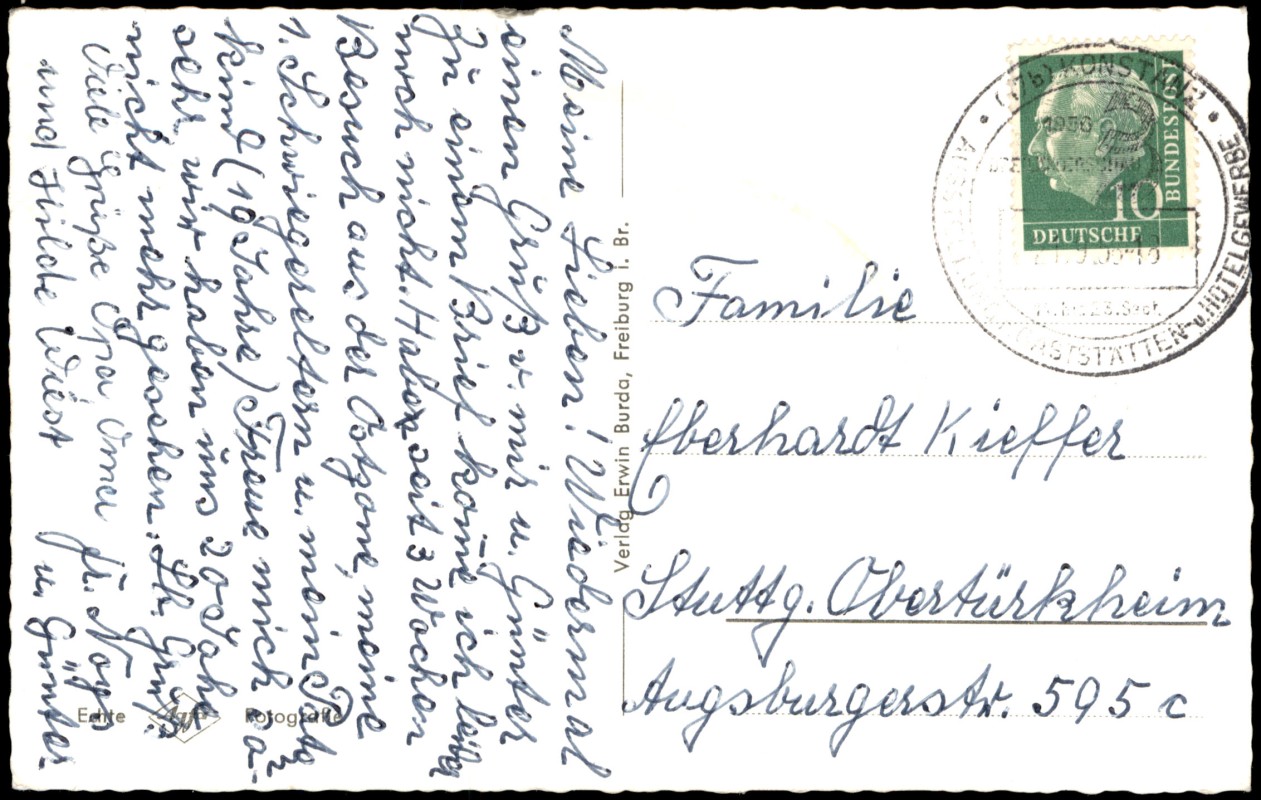 Meine Lieben! Wiedermal
einen Gruß v. mir u. Günter
Zu einem Brief kom̅e ich leider
noch nicht. Haben seit 3 Wochen
Besuch aus der Ostzone, meine
1. Schwiegereltern u. mein Patz
kind (19 Jahre) Freue mich sa-
sehr, wir haben uns 20 Jahre
nicht mehr gesehen. Hl. Grüße
Viele Grüße Opa Oma fr. Nops
und Hilde Wiest u. Günter
Echte Agfa Fotografie
Verlag Erwin Burda, Freiburg i. Br.
(17b) KONSTANZ
1956
GASTSTÄTTEN- u. HOTELGEWERBE
23. Sept.
10
DEUTSCHE
BUNDESPOST
Familie
Eberhardt Kieffer
Stuttg. Obertürkheim
Augsburgerstr. 595 c